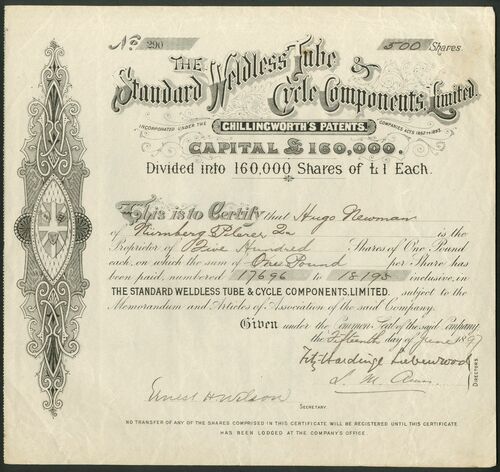 No. 290 500 Shares
THE
Standard Weldless Tube &
Cycle Components, Limited.
INCORPORATED UNDER THE COMPANIES ACTS 1862 TO 1893.
CHILLINGWORTH'S PATENTS.
CAPITAL £160,000.
Divided into 160,000 Shares of £1 Each.
This is to Certify that Hugo Newman
of Nürnberg is the
Proprietor of Five Hundred Shares of One Pound
each, on which the sum of One Pound per Share has
been paid, numbered 17696 to 18195 inclusive, in
THE STANDARD WELDLESS TUBE & CYCLE COMPONENTS, LIMITED. subject to the
Memorandum and Articles of Association of the said Company.
Given under the Common Seal of the said Company,
the Fifteenth day of June 1897
Fitz-Hardinge
DIRECTORS
Ernest H Wilson
SECRETARY
NO TRANSFER OF ANY OF THE SHARES COMPRISED IN THIS CERTIFICATE WILL BE REGISTERED UNTIL THIS CERTIFICATE
HAS BEEN LODGED AT THE COMPANY'S OFFICE.